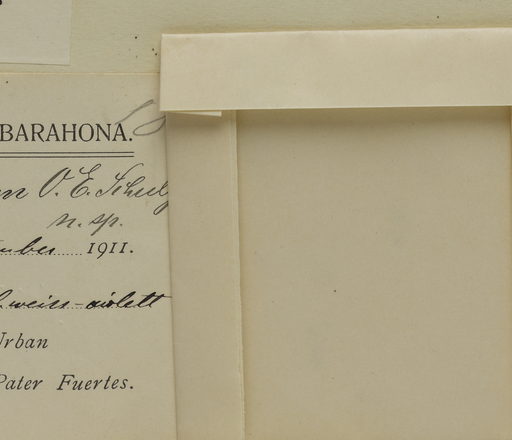 BARAHONA.
O. E. Schulz
n. sp.
mber 1911.
weiss-violett
Urban
Pater Fuertes.